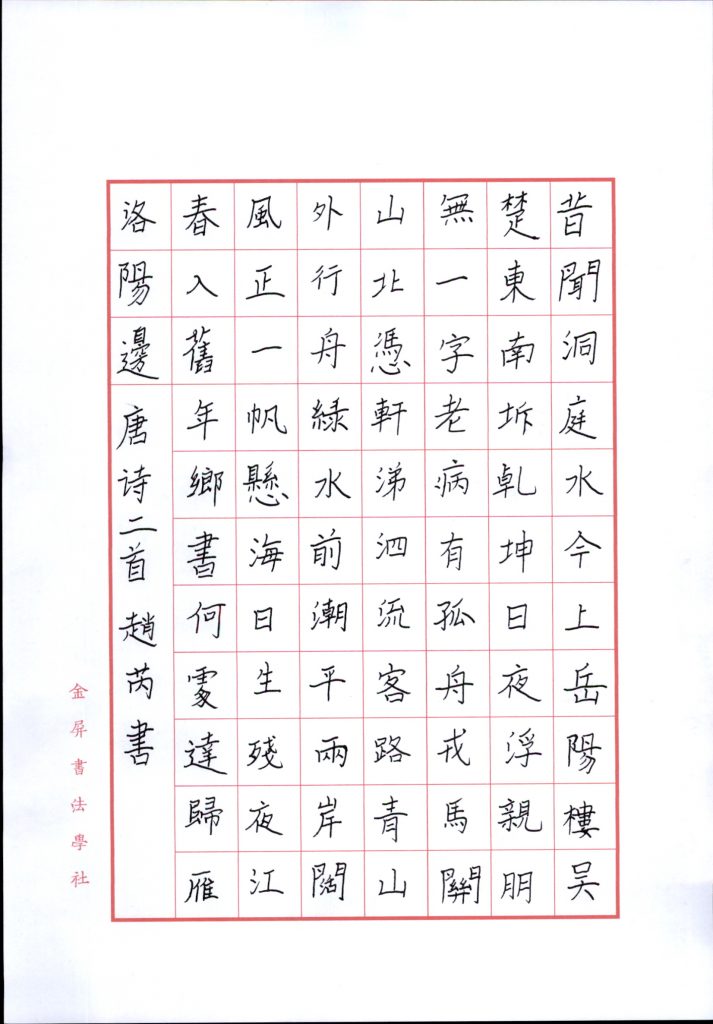 昔聞洞庭水今上岳陽樓吳
楚東南坼乹坤日夜浮親朋
無一字老病有孤舟戎馬關
山北憑軒涕泗流客路青山
外行舟綠水前潮平兩岸闊
風正一帆懸海日生殘夜江
春入舊年鄉書何處達歸雁
洛陽邊唐诗二首趙芮書
金屏書法學社